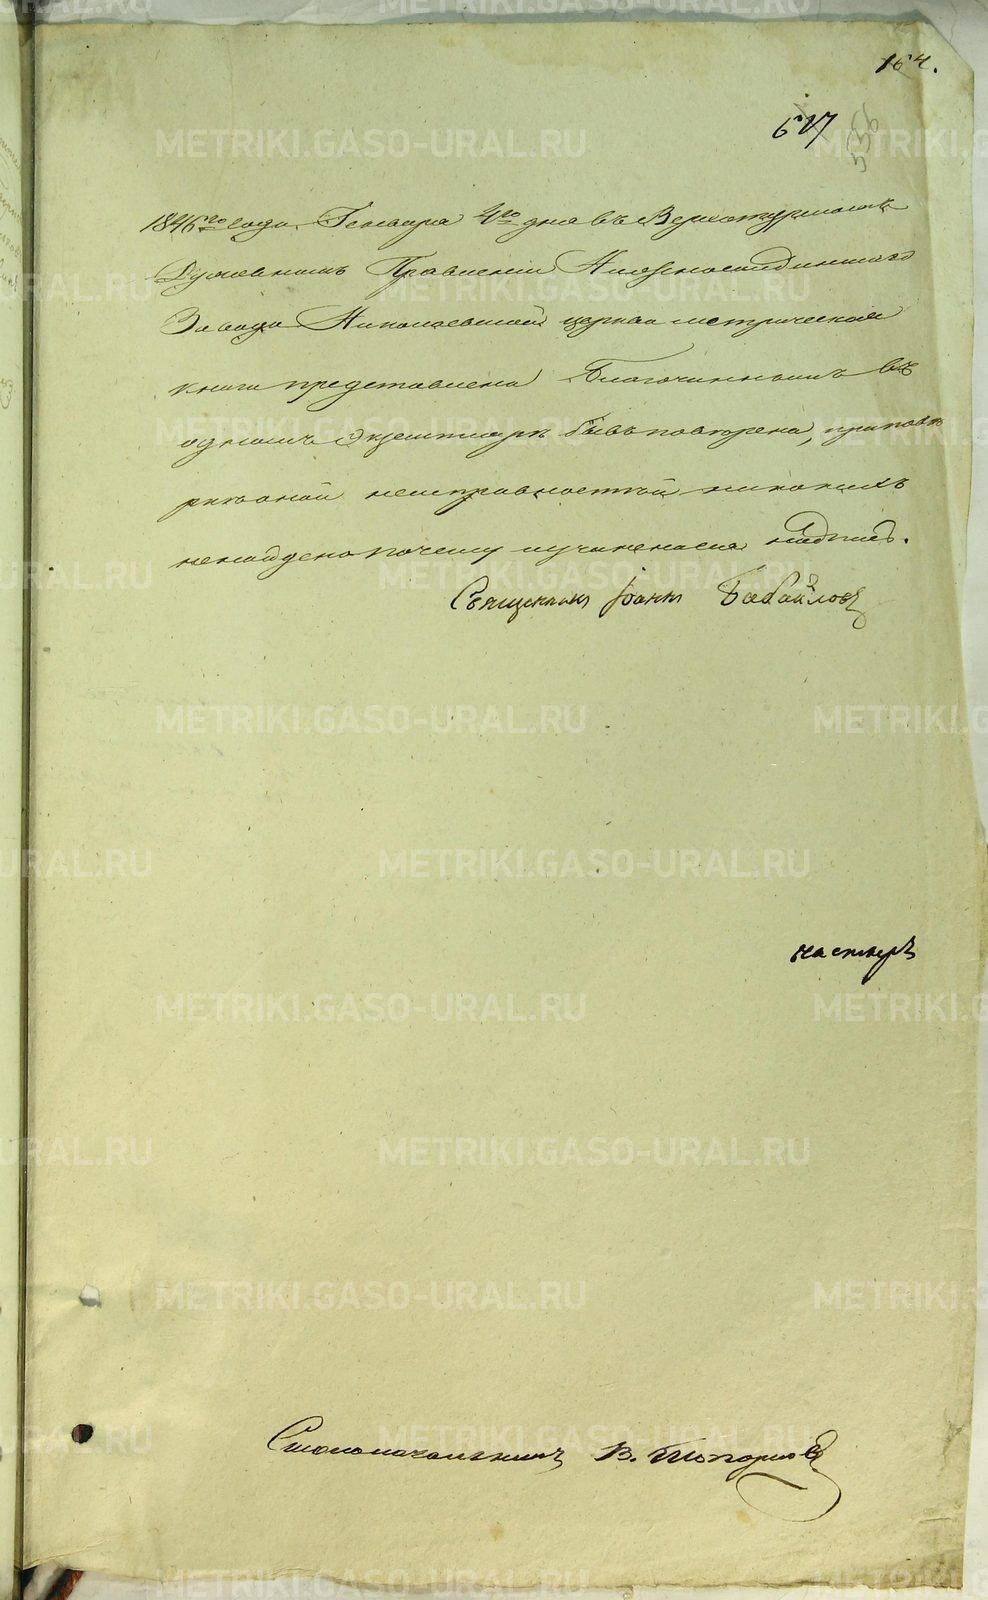 164.
617
536
1846го года Генваря 4го дня въ Верхотурскомъ
Духовномъ Правленіи Нижнесалдинскаго
Завода Николаевской церкви метрическая
книга представлена Благочиннымъ въ
одномъ экземпляръ бывъ повѣрена, при повѣ
ркѣ оной неисправностей никакихъ
ненайдено почему и учинена сія надпись.
Священникъ Іоаннъ Бабайловъ
Столоначальникъ В. Топорковъ
METRIKI.GASO-URAL.RU